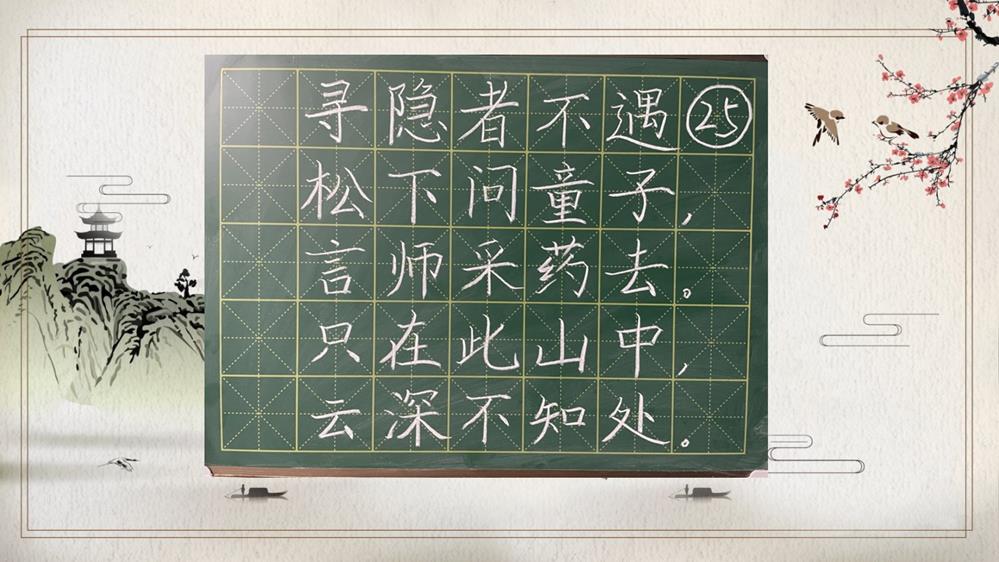 寻隐者不遇㉕
松下问童子，
言师采药去。
只在此山中，
云深不知处。